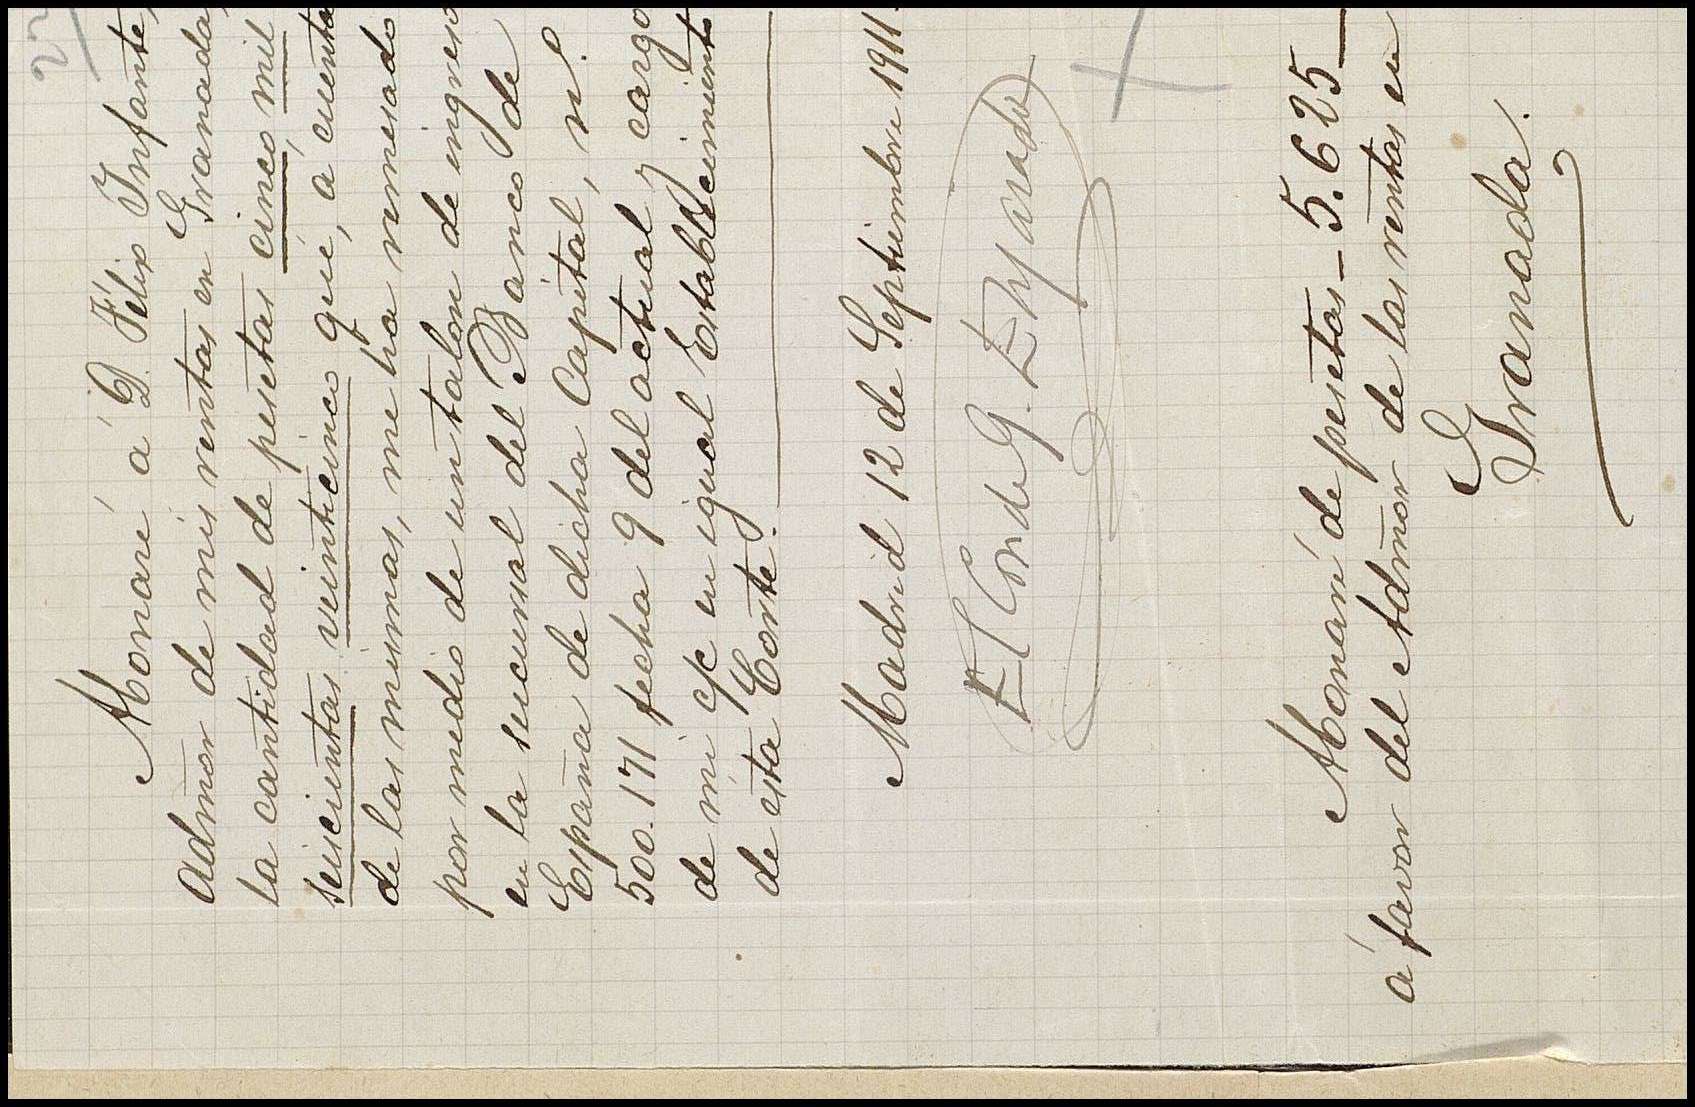 27
Abonaré á D. Félix Infante,
Admor de mis rentas en Granada,
la cantidad de pesetas cinco mil
seiscientas veinticinco que, á cuenta
de las mismas, me ha remesado
por medio de un talon de ingreso
en la sucursal del Banco de
España de dicha Capital, nº.
500.171 fecha 9 del actual y cargo
de mi c/c en igual Establecimiento
de esta Corte.
Madrid 12 de Septiembre 1911.
El Conde G.
Abonaré de pesetas — 5.625 —
á favor del Admor de las rentas en
Granada.